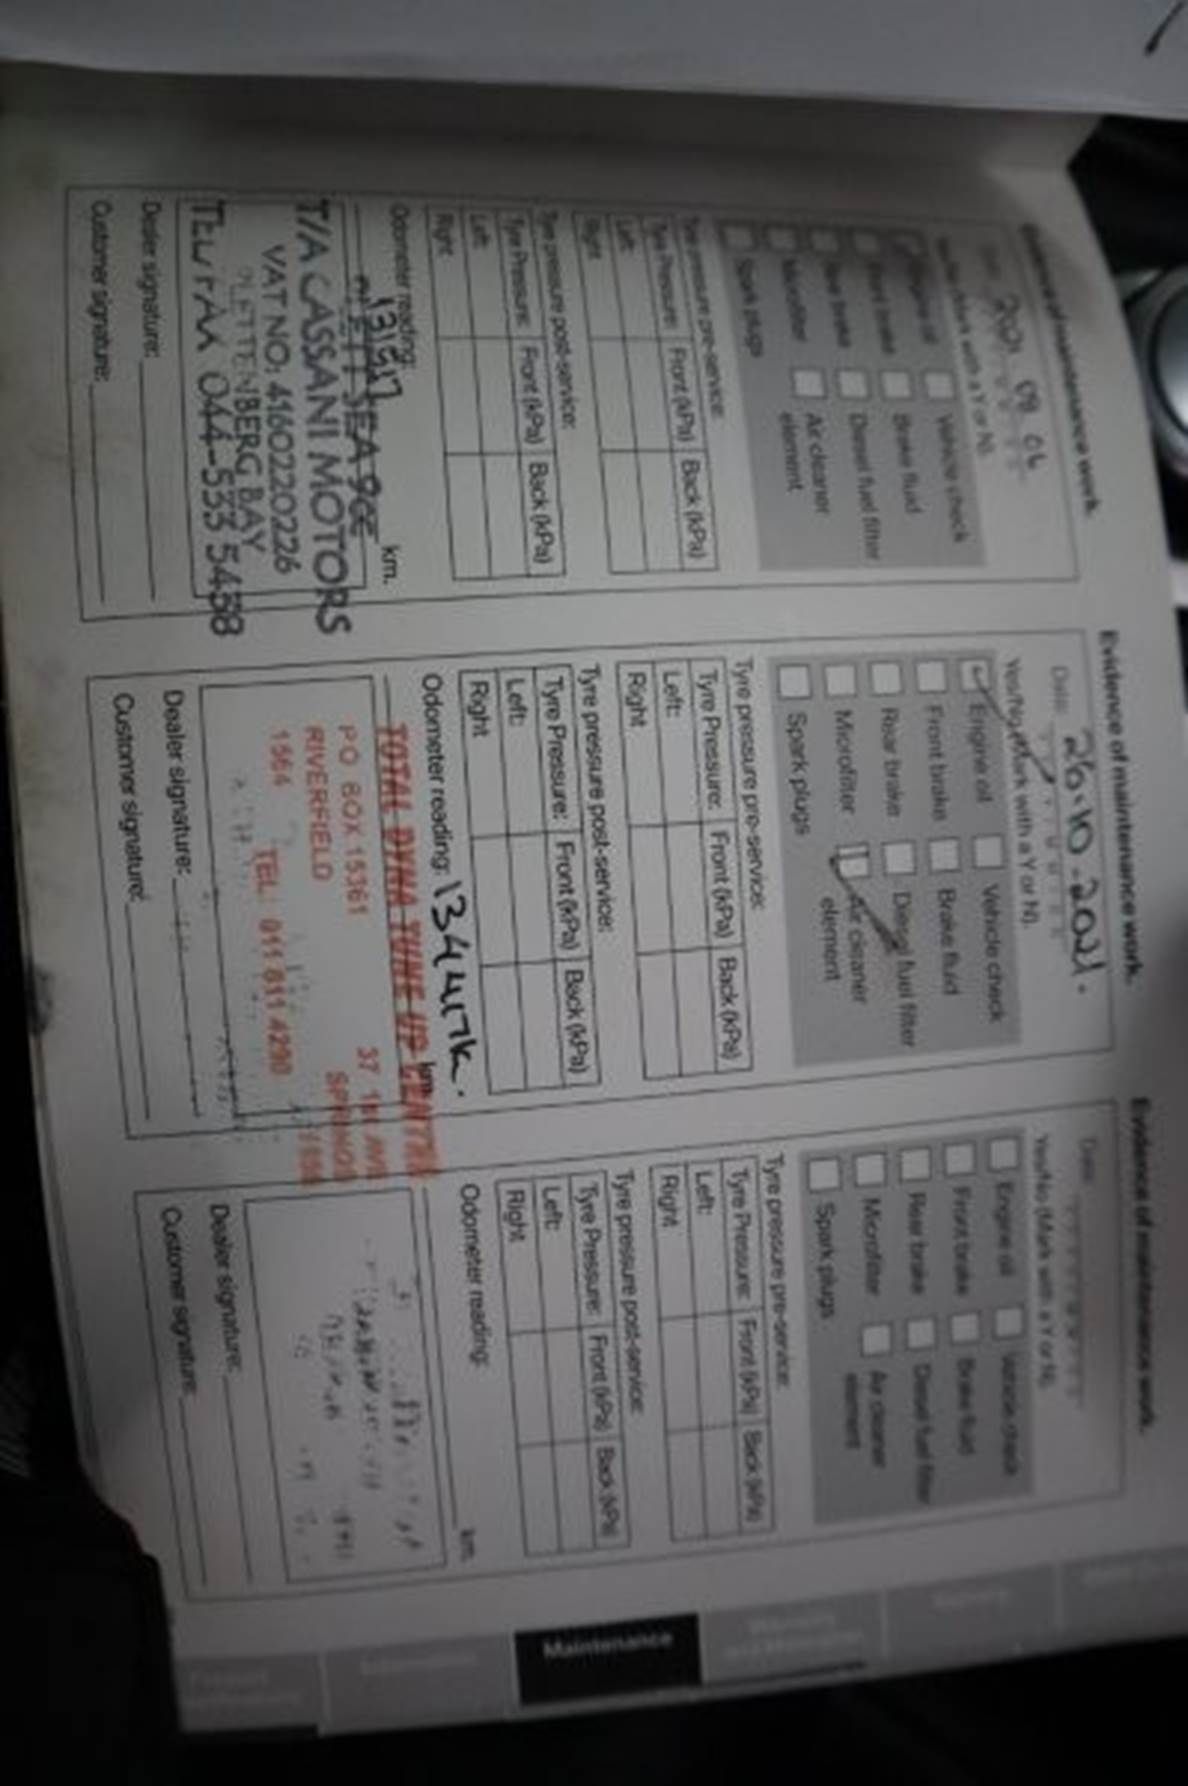 Evidence of maintenance work.
2021 09 06
Yes/No (Mark with a Y or N).
Engine oil
Vehicle check
Front brake
Brake fluid
Rear brake
Diesel fuel filter
Microfilter
Air cleaner
element
Spark plugs
Tyre pressure pre-service:
Tyre Pressure: Front (kPa) Back (kPa)
Left:
Right
Tyre pressure post-service:
Tyre Pressure: Front (kPa) Back (kPa)
Left:
Right
Odometer reading:
km.
T/A CASSANI MOTORS
VAT NO: 4160220226
PLETTENBERG BAY
044-533 5458
Dealer signature:
Customer signature:
Evidence of maintenance work.
Date: 26.10.2021.
Yes/No (Mark with a Y or N).
Engine oil
Vehicle check
Front brake
Brake fluid
Rear brake
Diesel fuel filter
Microfilter
Air cleaner
element
Spark plugs
Tyre pressure pre-service:
Tyre Pressure: Front (kPa) Back (kPa)
Left:
Right
Tyre pressure post-service:
Tyre Pressure: Front (kPa) Back (kPa)
Left:
Right
Odometer reading: 134417k. km.
TOTAL DYNA TUNE UP CENTRE
PO BOX 15361
37 1st AVE
RIVERFIELD
SPRINGS
1564
TEL: 011 811 4290
Dealer signature:
Customer signature:
Evidence of maintenance work.
Date:
Yes/No (Mark with a Y or N).
Engine oil
Vehicle check
Front brake
Brake fluid
Rear brake
Diesel fuel filter
Microfilter
Air cleaner
element
Spark plugs
Tyre pressure pre-service:
Tyre Pressure: Front (kPa) Back (kPa)
Left:
Right
Tyre pressure post-service:
Tyre Pressure: Front (kPa) Back (kPa)
Left:
Right
Odometer reading:
km.
Dealer signature:
Customer signature:
Maintenance